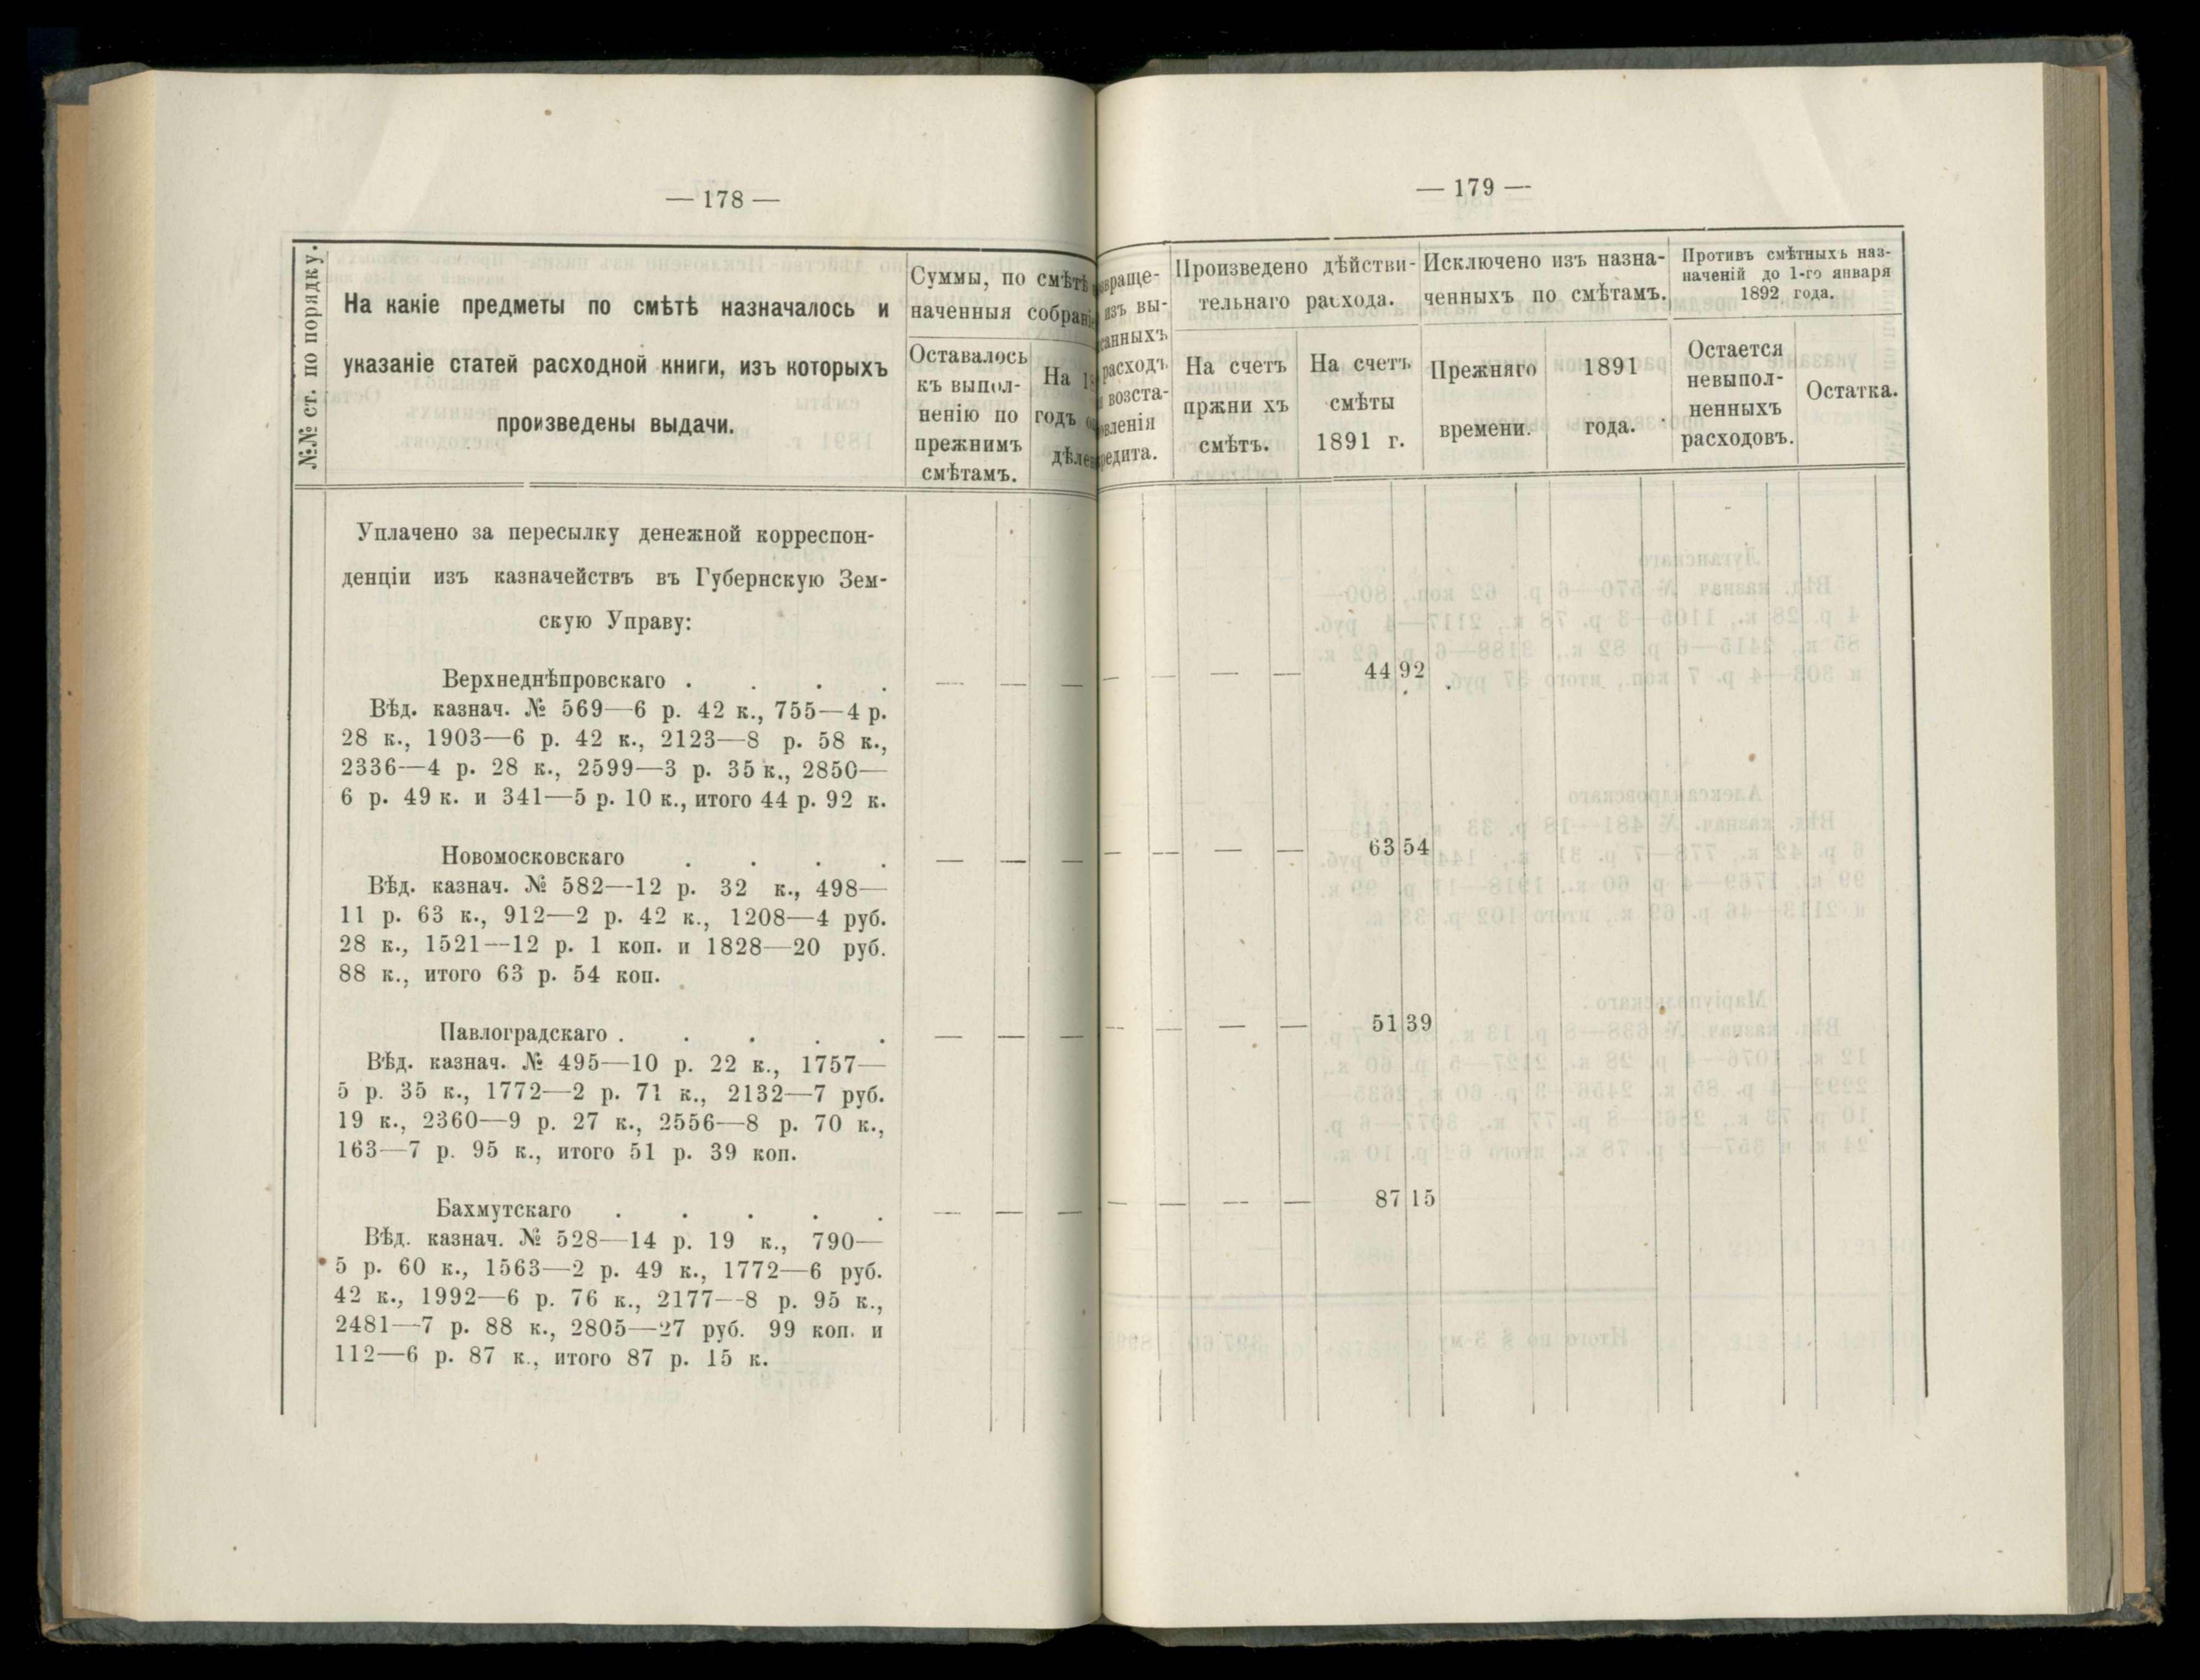 — 178 —
№№ ст. по порядку.
На какіе предметы по смѣтѣ назначалось и
указаніе статей расходной книги, изъ которыхъ
произведены выдачи.
Суммы, по смѣтѣ
наченныя
Оставалось
къ выпол-
ненію по
прежнимъ
смѣтамъ.
На
годъ
Уплачено за пересылку денежной корреспон-
денціи изъ казначействъ въ Губернскую Зем-
скую Управу:
Верхнеднѣпровскаго . . . . — — —
Вѣд. казнач. № 569—6 р. 42 к., 755—4 р.
28 к., 1903—6 р. 42 к., 2123—8 р. 58 к.,
2336—4 р. 28 к., 2599—3 р. 35 к., 2850—
6 р. 49 к. и 341—5 р. 10 к., итого 44 р. 92 к.
Новомосковскаго . . . . — — —
Вѣд. казнач. № 582—12 р. 32 к., 498—
11 р. 63 к., 912—2 р. 42 к., 1208—4 руб.
28 к., 1521—12 р. 1 коп. и 1828—20 руб.
88 к., итого 63 р. 54 коп.
Павлоградскаго . . . . . — — —
Вѣд. казнач. № 495—10 р. 22 к., 1757—
5 р. 35 к., 1772—2 р. 71 к., 2132—7 руб.
19 к., 2360—9 р. 27 к., 2556—8 р. 70 к.,
163—7 р. 95 к., итого 51 р. 39 коп.
Бахмутскаго . . . . . — — —
Вѣд. казнач. № 528—14 р. 19 к., 790—
5 р. 60 к., 1563—2 р. 49 к., 1772—6 руб.
42 к., 1992—6 р. 76 к., 2177—8 р. 95 к.,
2481—7 р. 88 к., 2805—27 руб. 99 коп. и
112—6 р. 87 к., итого 87 р. 15 к.
— 179 —
изъ вы-
расходъ
возста-
Произведено дѣйстви-
тельнаго расхода.
На счетъ
пржни хъ
смѣтъ.
На счетъ
смѣты
1891 г.
Исключено изъ назна-
ченныхъ по смѣтамъ.
Прежняго
времени.
1891
года.
Противъ смѣтныхъ наз-
наченій до 1-го января
1892 года.
Остается
невыпол-
ненныхъ
расходовъ.
Остатка.
— — — — 44 92
— — — — 63 54
— — — — 51 39
— — — — 87 15